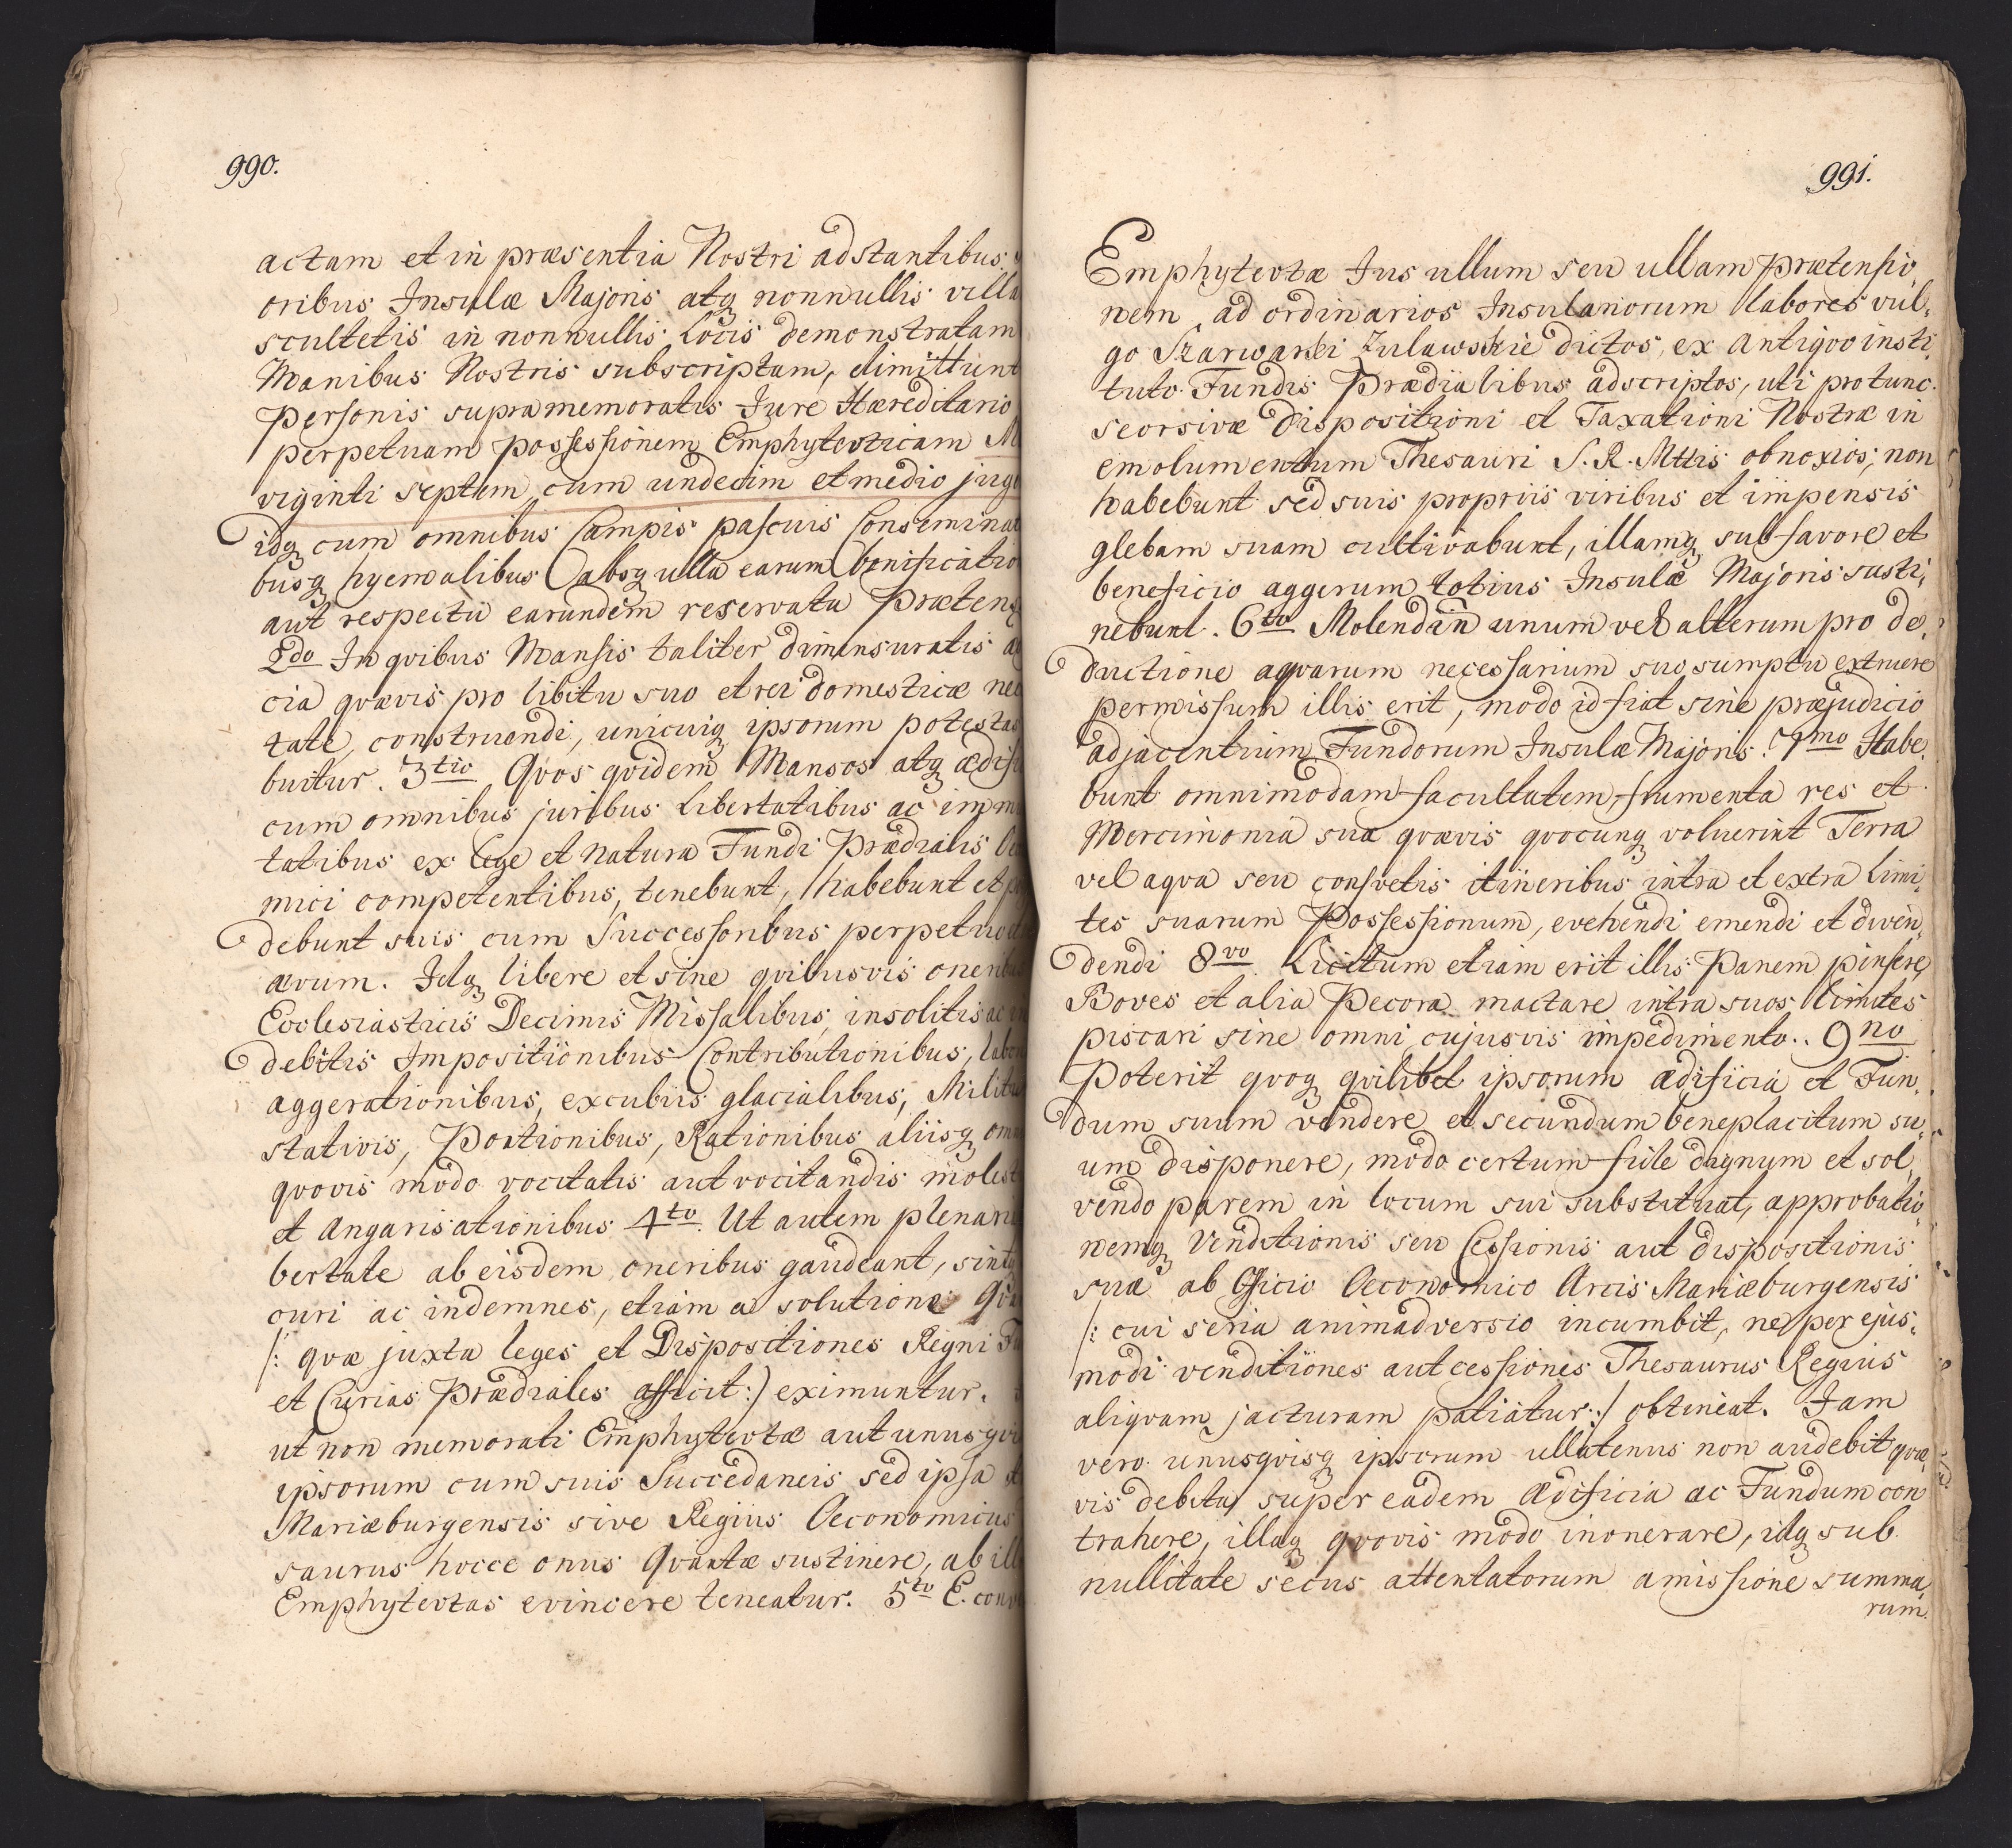 990.
actam et in præsentia Nostri adstantibus
oribus Insulæ Majoris atq nonnullis villa
scultetis in nonnullis Locis demonstratam
Manibus Nostris subscriptam, dimittunt
Personis supramemoratis Jure Hæreditario
perpetuam possessionem Emphyteoticam M
viginti septem cum undecim et medio juge
idq cum omnibus Campis pascuis Conseminat
busq hyemalibus (absq ulla earum bonificatio
aut respectu earundem reservata Prætens
2do In qvibus Mansis taliter dimensuratis æ
cia qvævis pro libitu suo et rei domesticæ nec
tate, construendi, unicuiq ipsorum potestas
buitur. 3tio Qvos qvidem Mansos atq ædifi
cum omnibus juribus Libertatibus ac imm
tatibus ex Lege et Natura Fundi Prædialis
mici competentibus, tenebunt, habebunt et p
debunt suis cum Successoribus perpetuo
ævum. Idq libere et sine qvibusvis oneribus
Ecclesiasticis Decimis Missalibus, insolitis ac in
debitis Impositionibus Contributionibus, labor
aggerationibus, excubiis glacialibus, Milita
stativis, Portionibus, Rationibus aliisq omn
qvovis modo vocitatis aut vocitandis molest
et Angarisationibus 4to Ut autem plenari
bertate ab eisdem oneribus gaudeant, sintq
curi ac indemnes, etiam a solutione Qva
/: qvæ juxta leges et Dispositiones Regni Fu
et Curias Prædiales afficit :/ eximuntur.
ut non memorati Emphyteotæ aut unusqvi
ipsorum cum suis Succedaneis sed ipsa
Mariæburgensis sive Regius Oeconomicus
saurus hocce onus Qvartæ sustinere, ab ill
Emphyteotas evincere teneatur. 5to E. conv
991.
Emphyteotæ Jus ullum seu ullam prætensio,
nem ad ordinarios Insulanorum labores vul,
go Szarwarki Zulawskie dictos, ex Antiqvo insti,
tuto Fundis Prædialibus adscriptos, uti protunc
seorsivæ Dispositioni et Taxationi Nostræ in
emolumentum Thesauri S. R. Mttis obnoxios, non
habebunt sed suis propriis viribus et impensis
glebam suam cultivabunt, illamq sub favore et
beneficio aggerum totius Insulæ Majoris susti,
nebunt. 6to Molendin unum vel alterum pro de,
ductione aqvarum necessarium suo sumptu extruere
permissum illis erit, modo id fiat sine præjudicio
adjacentium Fundorum Insulæ Majoris. 7mo Habe,
bunt omnimodam facultatem, frumenta res et
Mercimonia sua qvævis qvocunq voluerint Terra
vel aqva seu consvetis itineribus intra et extra Limi,
tes suarum Possessionum, evehendi emendi et diven,
dendi 8vo Licitum etiam erit illis Panem pinsere,
Boves et alia Pecora mactare intra suos limites
piscari sine omni cujusvis impedimento. 9no
Poterit qvoq qvilibet ipsorum ædificia et Fun,
dum suum vendere et secundum beneplacitum su,
um disponere, modo certum fide dignum et sol,
vendo parem in locum sui substituat, approbatio,
nemq Venditionis seu Cessionis aut dispositionis
suæ ab Officio Oeconomico Arcis Mariæburgensis
/: cui seria animadversio incumbit, ne per ejus,
modi venditiones aut cessiones Thesaurus Regius
aliqvam jacturam patiatur :/ obtineat. Jam
vero unusqvisq ipsorum ullatenus non audebit qvæ,
vis debita super eadem Ædificia ac Fundum con
trahere, illaq qvovis modo inonerare, idq sub
nullitate secus attentatorum amissione summa,
rum.